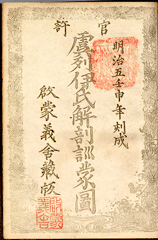 官許
明治五壬申年刻成
虞列伊氏解剖訓蒙圖
啟蒙義舍藏板